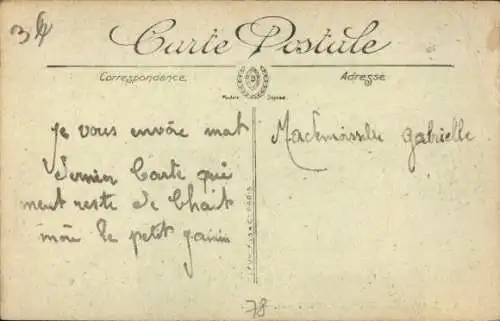 Carte Postale
Correspondance
Adresse
Modèle Déposé
je vous envoie mat
Dernier Carte qui
ment reste de
le petit
Mademoiselle Gabrielle
78